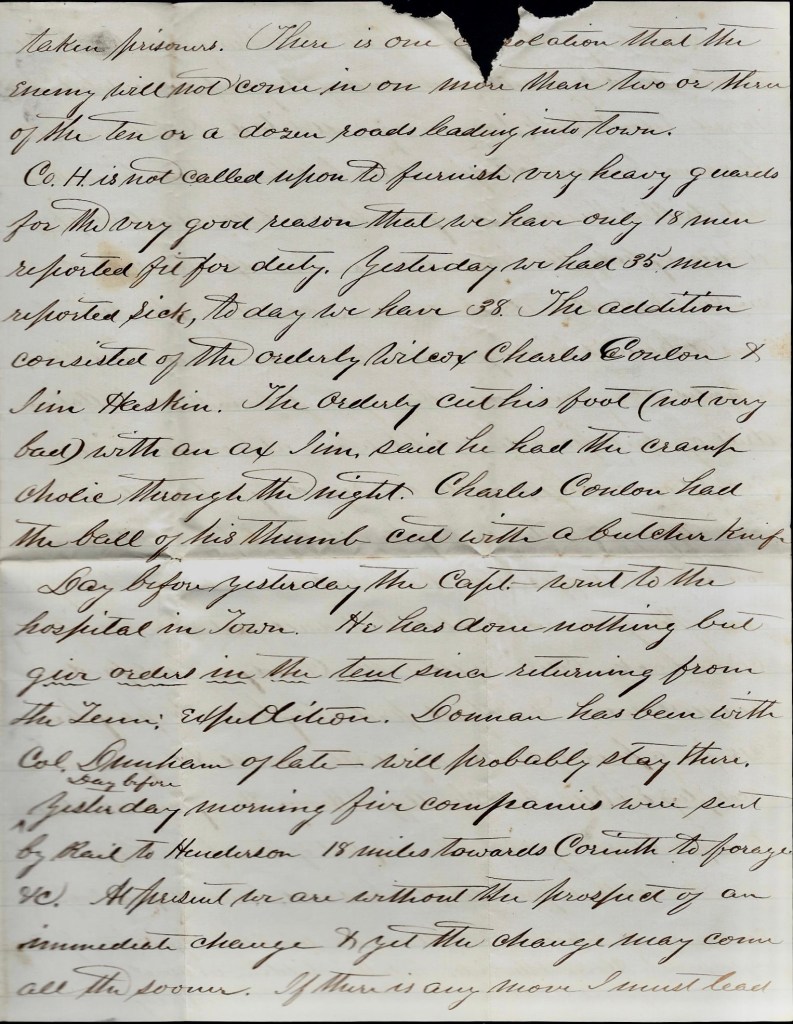 taken prisoners. There is one consolation that the
Enemy will not come in on more than two or three
of the ten or a dozen roads leading into town.
Co. H. is not called upon to furnish very heavy guards
for the very good reason that we have only 18 men
reported fit for duty. Yesterday we had 35 men
reported sick, to day we have 38. The addition
consisted of the orderly Wilcox Charles Conlon &
Jim Heskin. The Orderly cut his foot (not very
bad) with an ax Jim, said he had the cramp
cholic through the night. Charles Conlon had
the ball of his thumb cut with a butcher knife
Day before yesterday the Capt. went to the
hospital in Town. He has done nothing but
give orders in the tent since returning from
the Tenn; Expedition. Donnan has been with
Col. Dunham of late — will probably stay there.
Day before
^ Yesterday morning five companies were sent
by Rail to Henderson 18 miles towards Corinth to forage
&c. At present we are without the prospect of an
immediate change & yet the change may come
all the sooner. If there is any move I must lead